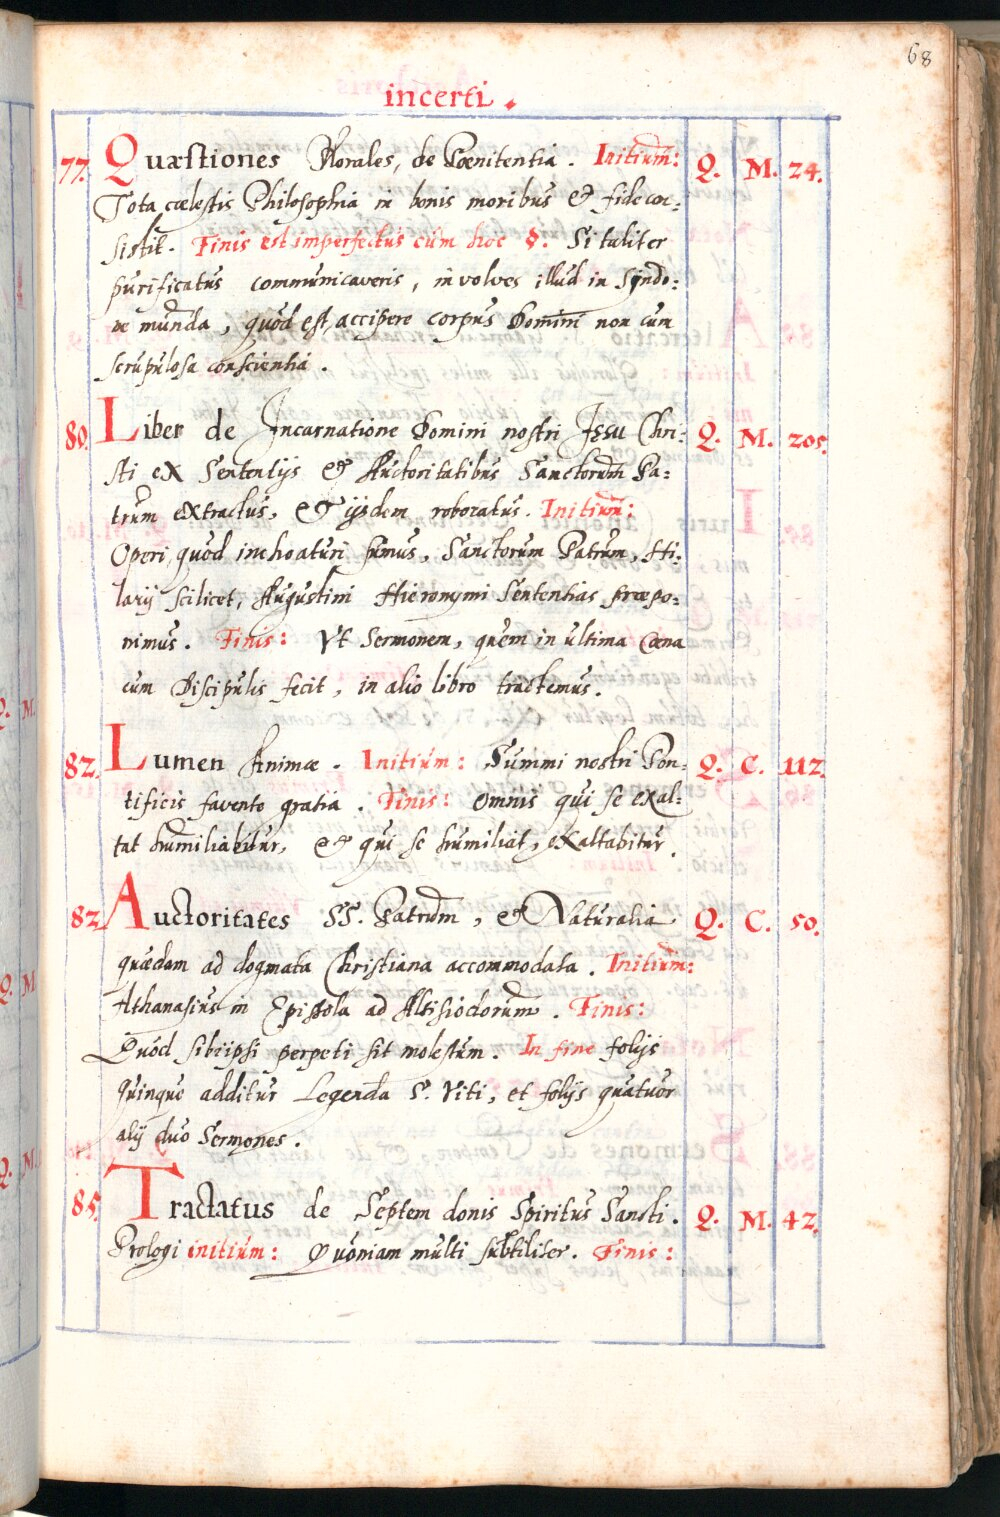 68
incerti.
77. Quæstiones Morales, de Pœnitentia. Initium: Q. M. 24.
Tota cœlestis Philosophia in bonis moribus & fide con-
sistit. Finis est imperfectus cum hoc §: Si taliter
purificatus communicaveris, involves illud in Syndo-
ne munda, quod est, accipere corpus Domini non cum
scrupulosa conscientia.
80. Liber de Incarnatione Domini nostri Jesu Chri- Q. M. 205.
sti ex Sententijs & Auctoritatibus Sanctorum Pa-
trum extractus, & ijsdem roboratus. Initium:
Operi, quod inchoaturi sumus, Sanctorum Patrum, Hi-
larij scilicet, Augustini Hieronymi Sententias præpo-
nimus. Finis: Vt Sermonem, quem in ultima Cœna
cum Discipulis fecit, in alio libro tractemus.
82. Lumen Animæ. Initium: Summi nostri Pon- Q. C. 112.
tificis favente gratia. Finis: Omnis qui se exal-
tat humiliabitur, & qui se humiliat, exaltabitur.
82 Auctoritates SS. Patrum, & Naturalia Q. C. 50.
quædam ad dogmata Christiana accommodata. Initium:
Athanasius in Epistola ad Altisiodorum. Finis:
Quod sibi ipsi perpeti sit molestum. In fine folijs
quinque additur Legenda S. Viti, et folijs quatuor
alij duo Sermones.
85. Tractatus de Septem donis Spiritus Sancti. Q. M. 42.
Prologi initium: Quoniam multi subtiliter. Finis: